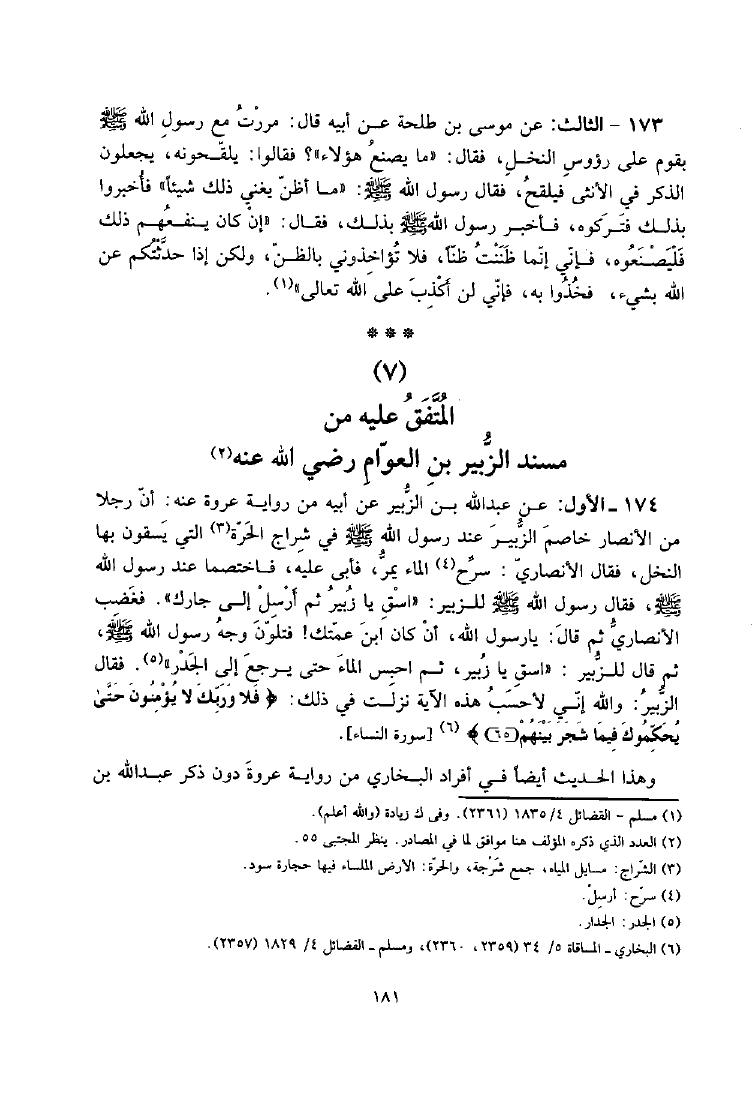 ١٧٣ - الثالث: عن موسى بن طلحة عـن أبيه قال: مررْتُ مع رسولِ الله ﷺ
بقوم على رؤوسِ النخـلِ، فقال: «ما يصنعُ هؤلاء»؟ فقالوا: يلقّحونه، يجعلون
الذكر في الأنثى فيلقحُ، فقال رسول الله ﷺ: «مـا أظنّ يغني ذلك شيئاً» فأُخبروا
بذلـك فتَـركوه، فـأخبـر رسول اللهﷺ بذلـك، فقـال: «إن كان ينـفعُـهـم ذلك
فَلْيَصْـنَعُوه، فـإنّي إنّما ظَنَنْتُ ظنّاً، فلا تُؤاخِذوني بالظـنّ، ولكن إذا حدثْتُكم عن
الله بشيء، فخُذُوا به، فإنّي لن أكْذِبَ على الله تعالى»(١).
***
(٧)
المُتَّفَقُ عليه من
مسند الزُّبير بنِ العوّامِ رضي الله عنه(٢)
١٧٤ - الأول: عـن عبدالله بـن الزُّبير عن أبيه من روايـة عروة عنه: أنّ رجلا
من الأنصار خاصمَ الزُّبيـرَ عند رسول الله ﷺ في شِراج الحَرّة(٣) التي يَسقون بها
النخل، فقال الأنصاريّ: سرِّح(٤) الماء يمرُّ، فأبى عليه، فـاختصما عند رسول الله
ﷺ، فقال رسول الله ﷺ للـزبير: «اسْقِ يا زُبيرُ ثم أَرْسِلْ إلـى جارك». فغَضِب
الأنصاريُّ ثم قالَ: يارسول الله، أنْ كان ابنَ عمّتك! فتلوّنَ وجهُ رسول الله ﷺ،
ثم قال للـزُّبير : «اسقِ يا زُبير، ثـم احبس الماءَ حتى يـرجعَ إلى الجَدْر»(٥). فقال
الزُّبيرُ: والله إنّـي لأحسَبُ هذه الآية نزلَـت في ذلك: ﴿ فَلَا وَرَبِّكَ لَا يُؤْمِنُونَ حَتَّىٰ
يُحَكِّمُوكَ فِيمَا شَجَرَ بَيْنَهُمْ (٦٥) ﴾ (٦) [سورة النساء].
وهذا الحديث أيضاً فـي أفراد البخاري من روايـة عروةَ دون ذكر عبدالله بن
(١) مسلم - الفضائل ٤/ ١٨٣٥ (٢٣٦١). وفى ك زيادة (والله أعلم).
(٢) العدد الذي ذكره المؤلف هنا موافق لما في المصادر. ينظر المجتبى ٥٥.
(٣) الشّراج: مسايل المياه، جمع شَرْجة، والحرّة: الأرض الملساء فيها حجارة سود.
(٤) سرّح: أرسِلْ.
(٥) الجدر: الجدار.
(٦) البخاري - المساقاة ٥/ ٣٤ (٢٣٥٩، ٢٣٦٠)، ومسلم - الفضائل ٤/ ١٨٢٩ (٢٣٥٧).
١٨١